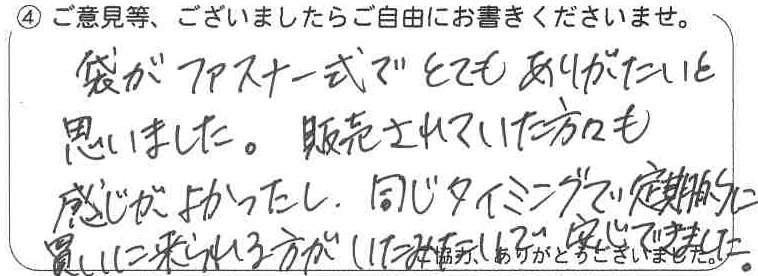 ④ ご意見等、ございましたらご自由にお書きくださいませ。
袋がファスナー式でとてもありがたいと
思いました。販売されていた方々も
感じがよかったし、同じタイミングで定期的に
買いに来られる方がいたみたいで安心できました。
ご協力、ありがとうございました。